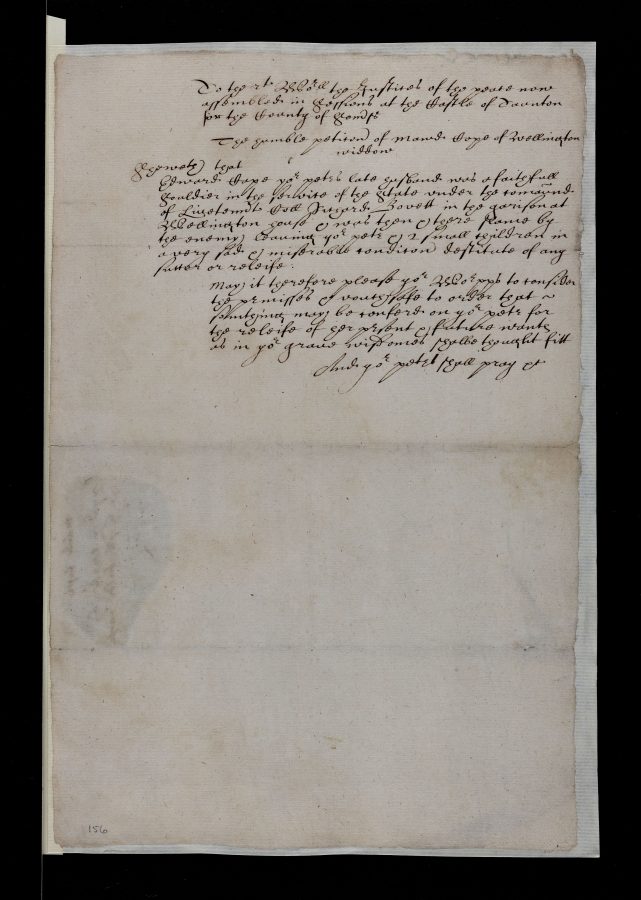 To the rt Worll the Justices of the peace now
assembled in Sessions at the Castle of Taunton
for the County of Somst
The humble peticon of Mawd Cape of Wellington
widdow
Sheweth that
Edward Cape yor petrs late husband was a faithfull
Souldier in the service of the State under the comaund
of Lieutennt Coll in the garison at
Wellington house & was then & there slaine by
the enemy, leaving yor petr & 2 small children in
a very sad & miserable condicon destitute of any
succor or releife.
May it therefore please yor Worpps to consider
the premisses & vouchsafe to order that
somthing may be conferd on yor petr for
the releife of her prsent & future wants
as in yor grave wisdomes shalbe thought fitt
And yor petr shall pray &c
156